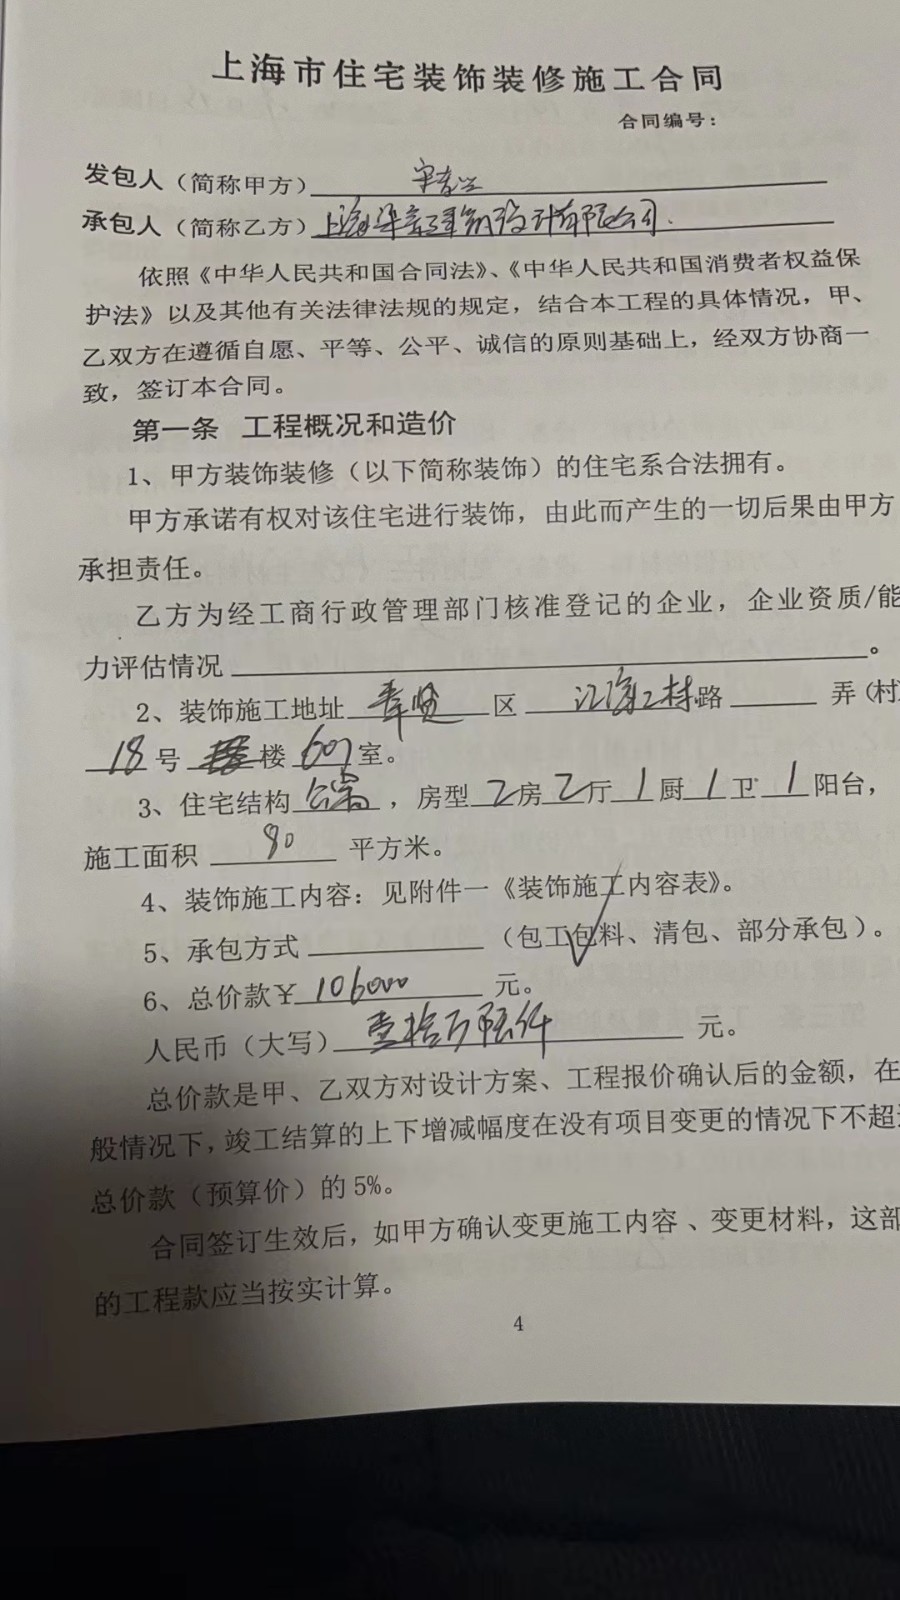 上海市住宅装饰装修施工合同
合同编号：
发包人（简称甲方）
承包人（简称乙方）上海 建筑设计有限公司.
依照《中华人民共和国合同法》、《中华人民共和国消费者权益保
护法》以及其他有关法律法规的规定，结合本工程的具体情况，甲、
乙双方在遵循自愿、平等、公平、诚信的原则基础上，经双方协商一
致，签订本合同。
第一条 工程概况和造价
1、甲方装饰装修（以下简称装饰）的住宅系合法拥有。
甲方承诺有权对该住宅进行装饰，由此而产生的一切后果由甲方
承担责任。
乙方为经工商行政管理部门核准登记的企业，企业资质/能
力评估情况 。
2、装饰施工地址 奉贤 区 江海二村 路 弄（村）
18 号 楼 607 室。
3、住宅结构 公寓 ，房型 2 房 2 厅 1 厨 1 卫 1 阳台，
施工面积 90 平方米。
4、装饰施工内容：见附件一《装饰施工内容表》。
5、承包方式 （包工包料、清包、部分承包）。
6、总价款￥ 106000 元。
人民币（大写） 壹拾万陆仟 元。
总价款是甲、乙双方对设计方案、工程报价确认后的金额，在
般情况下，竣工结算的上下增减幅度在没有项目变更的情况下不超
总价款（预算价）的 5%。
合同签订生效后，如甲方确认变更施工内容 、变更材料，这部
的工程款应当按实计算。
4